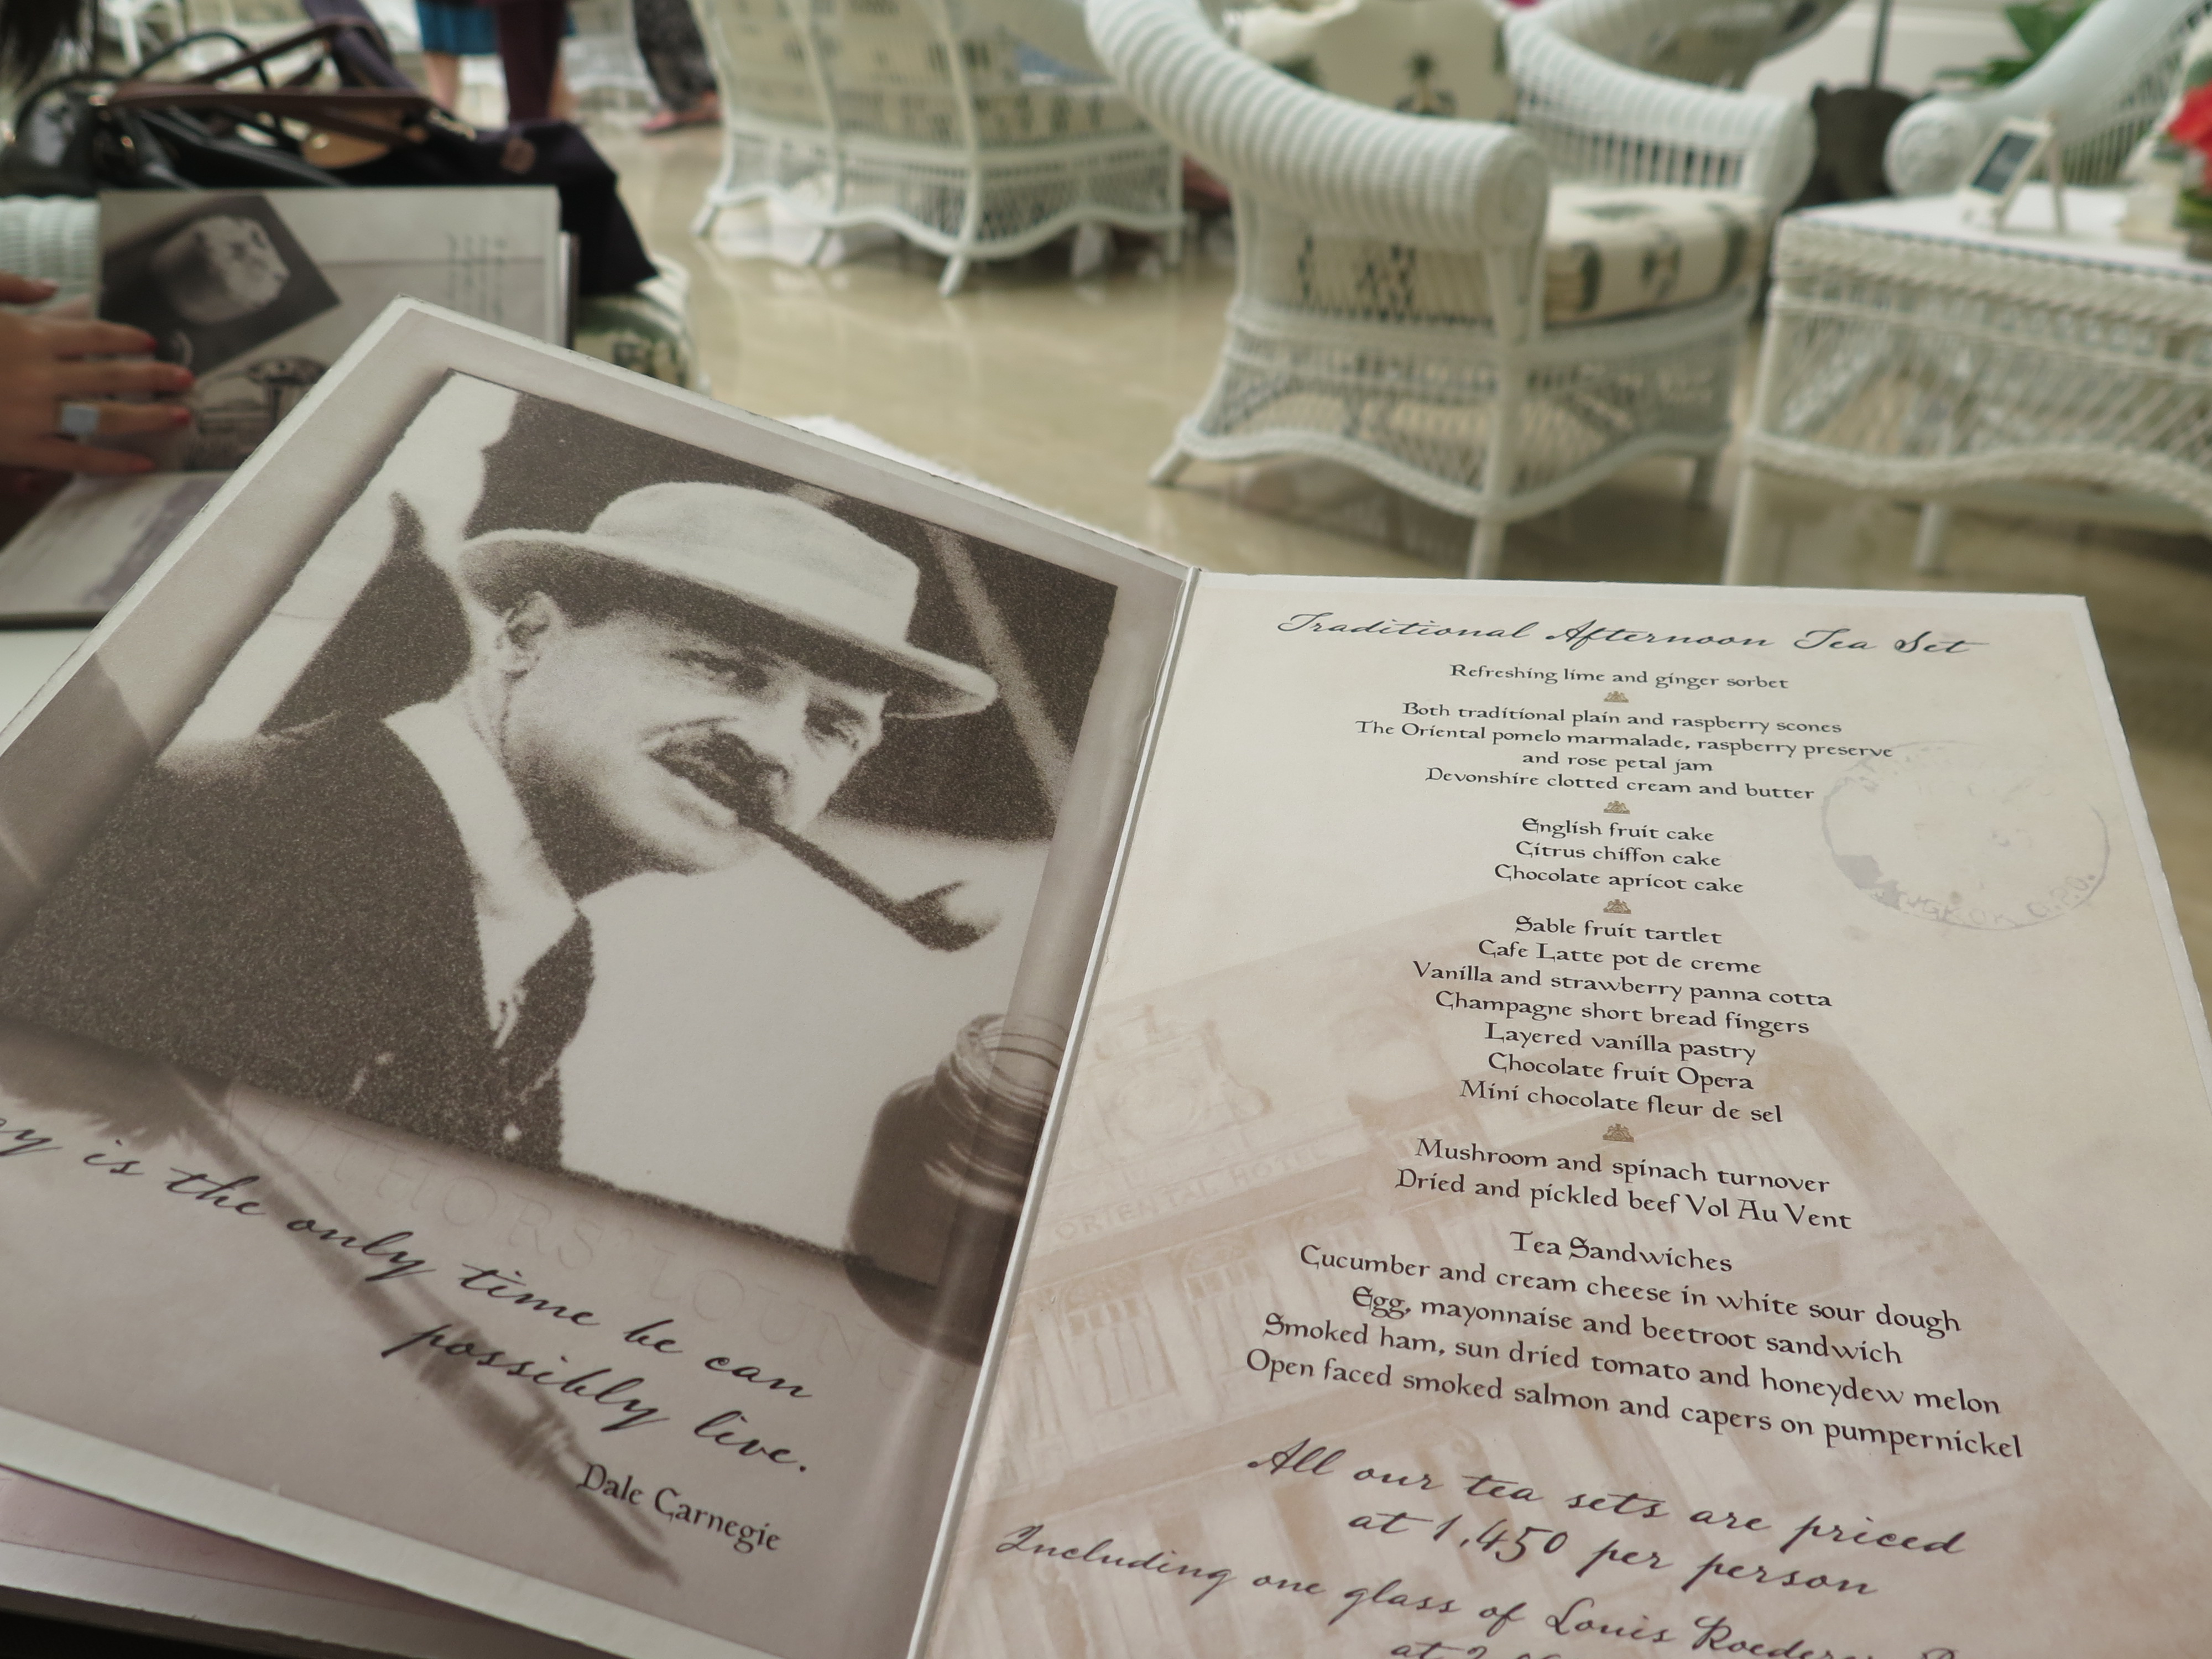 is the only
time be can
possibly live.
Dale Carnegie
AUTHORS' LOUN
Traditional Afternoon Tea Set
Refreshing lime and ginger sorbet
Both traditional plain and raspberry scones
The Oriental pomelo marmalade, raspberry preserve
and rose petal jam
Devonshire clotted cream and butter
English fruit cake
Citrus chiffon cake
Chocolate apricot cake
Sable fruit tartlet
Cafe Latte pot de creme
Vanilla and strawberry panna cotta
Champagne short bread fingers
Layered vanilla pastry
Chocolate fruit Opera
Mini chocolate fleur de sel
Mushroom and spinach turnover
Dried and pickled beef Vol Au Vent
Tea Sandwiches
Cucumber and cream cheese in white sour dough
Egg, mayonnaise and beetroot sandwich
Smoked ham, sun dried tomato and honeydew melon
Open faced smoked salmon and capers on pumpernickel
All our tea sets are priced
at 1,450 per person
Including one glass of Louis Roederer
at
ORIENTAL HOTEL